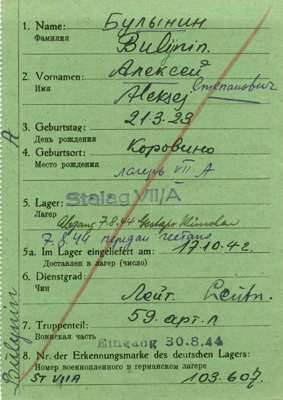 1. Name: Булынин
Фамилия Bulijnin.
2. Vornamen: Алексей
Имя Степанович
Aleksej
3. Geburtstag: 21.3.29
День рождения
4. Geburtsort: Коровино
Место рождения
лагерь VII A
5. Lager: Stalag VII/A
Лагерь
Abgang 7.8.44 Gestapo München
7.8.44 передан гестапо
5a. Im Lager eingeliefert am: 17.10.42.
Доставлен в лагерь (число)
6. Dienstgrad:
Чин
Лейт. Leutn.
59. арт. п
7. Truppenteil:
Воинская часть
Eingang 30.8.44
8. Nr. der Erkennungsmarke des deutschen Lagers:
Номер военнопленного в германском лагере
ST VIIA 103.607.
A
Bulijnin